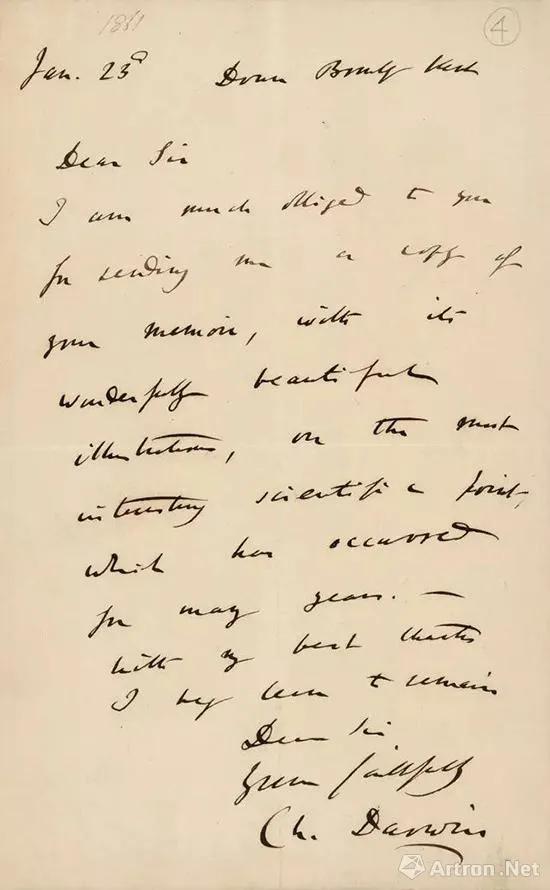 1881
4
Jan. 23d Down Bromley Kent
Dear Sir
I am much obliged to you
for sending me a copy of
your memoir, with its
wonderfully beautiful
illustrations, on the most
interesting scientific point,
which has occurred
for many years. —
With my best thanks
I beg leave to remain
Dear Sir
Yours faithfully
Ch. Darwin
Artron.Net